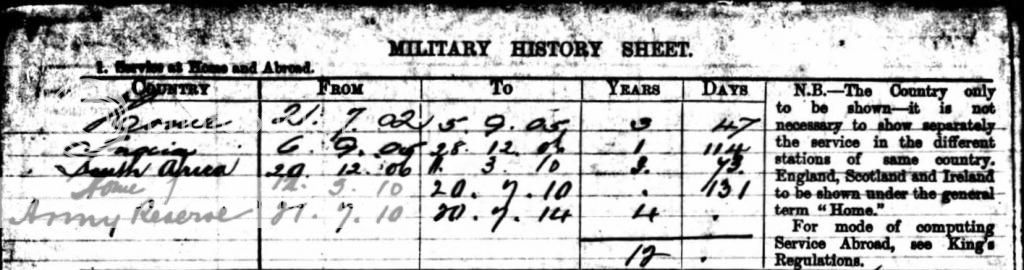 MILITARY HISTORY SHEET.
1. Service at Home and Abroad.
COUNTRY FROM TO YEARS DAYS
21. 7. 02 5. 9. 05 3 47
6. 9. 05 28. 12. 06 1 114
South Africa 12. 06 3. 10 3. 73.
Home 12. 3. 10 20. 7. 10 . 131
Army Reserve 21. 7. 10 20. 7. 14 4 .
12 .
N.B.—The Country only
to be shown—it is not
necessary to show separately
the service in the different
stations of same country.
England, Scotland and Ireland
to be shown under the general
term "Home."
For mode of computing
Service Abroad, see King's
Regulations.